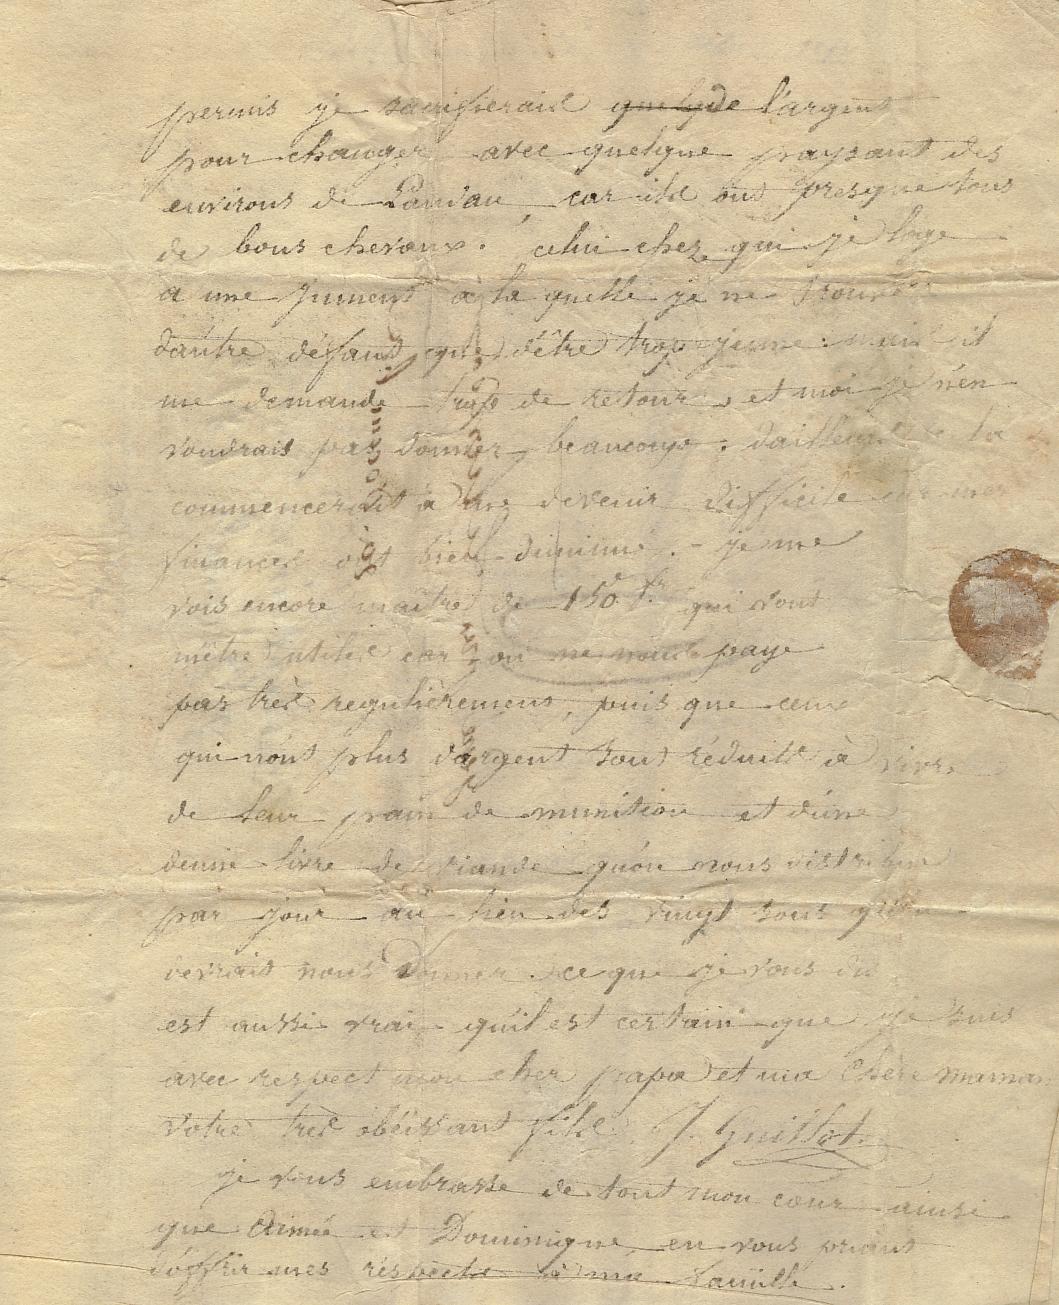 permis je sacrifierais de l'argent
pour changer avec quelque paysant des
environs de Landau, car ils ont presque tous
de bons chevaux. celui chez qui je loge
a une jument a la quelle je ne trouve
d'autre défaut que d'être trop jeune : mais il
me demande trop de retour, et moi je n'en
voudrais pas donner beaucoup : d'ailleurs la
commencerait a me devenir difficile car mes
finances ont bien diminué. - je me
vois encore maitre de 150 fr qui vont
m'être utiles car on ne nous paye
pas très regulièrement, puis que ceux
qui n'ont plus d'argent sont réduits à vivre
de leur pain de munition et d'une
demie livre de viande qu'on nous distribue
par jour au lieu des vingt sous qu'on
devrait nous donner. ce que je vous dis
est aussi vrai qu'il est certain que je suis
avec respect mon cher papa et ma chere maman
votre très obéissant fils J. Guillot.
je vous embrasse de tout mon cœur ainsi
que Aimée et Dominique, en vous priant
d'offrir mes réspects à ma famille.